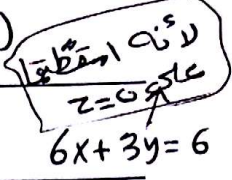 لأنه اسقطها
على z=0
6x+3y=6